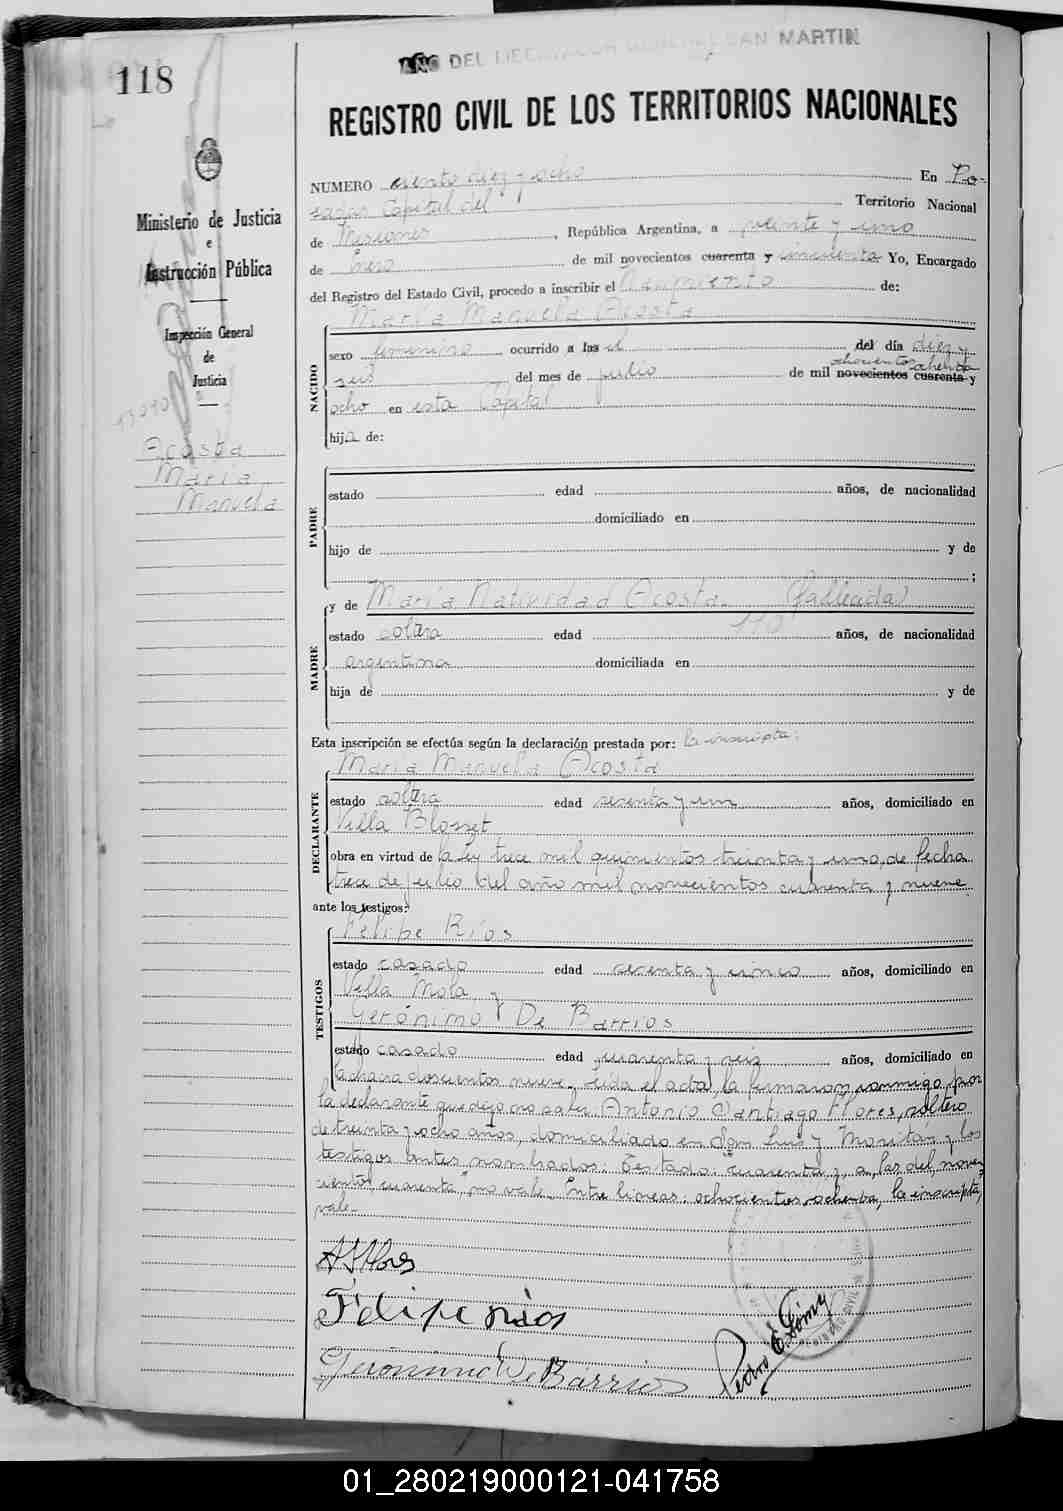 118
AÑO DEL LIBERTADOR GENERAL SAN MARTIN
REGISTRO CIVIL DE LOS TERRITORIOS NACIONALES
Ministerio de Justicia
e
Instrucción Pública
Inspección General
de
Justicia
Acosta
María
Manuela
NUMERO ciento diez y ocho En Po-
sadas Capital del Territorio Nacional
de Misiones, República Argentina, a veinte y uno
de Enero de mil novecientos cuarenta y cincuenta Yo, Encargado
del Registro del Estado Civil, procedo a inscribir el Nacimiento de:
María Manuela Acosta
NACIDO
sexo femenino ocurrido a las el del día diez y
ochocientos ochenta
seis del mes de julio de mil novecientos cuarenta y
ocho en esta Capital
hija de:
PADRE
estado edad años, de nacionalidad
domiciliado en
hijo de y de
;
MADRE
y de María Natividad Acosta. (fallecida)
estado soltera edad años, de nacionalidad
argentina domiciliada en
hija de y de
Esta inscripción se efectúa según la declaración prestada por: la inscripta:
María Manuela Acosta
DECLARANTE
estado soltera edad sesenta y un años, domiciliado en
Villa Blosset
obra en virtud de la ley trece mil quinientos treinta y uno, de fecha
trece de julio del año mil novecientos cuarenta y nueve
ante los testigos:
Felipe Ríos
TESTIGOS
estado casado edad sesenta y cinco años, domiciliado en
Villa Mola y
Gerónimo De Barrios
estado casado edad cuarenta y seis años, domiciliado en
la chacra doscientos nueve. Leida el acta, la firmaron conmigo, por
la declarante que dijo no saber Antonio Santiago Flores, soltero
de treinta y ocho años, domiciliado en San Luis y Moritan y los
testigos antes nombrados. Testado: cuarenta y, a, las, del, nove
cientos, cuarenta, no vale. Entre lineas: ochocientos, ochenta, la inscripta,
vale.
A S Flores
Felipe rios
Gerónimo De Barrios
Pedro E. Gómez
01_280219000121-041758